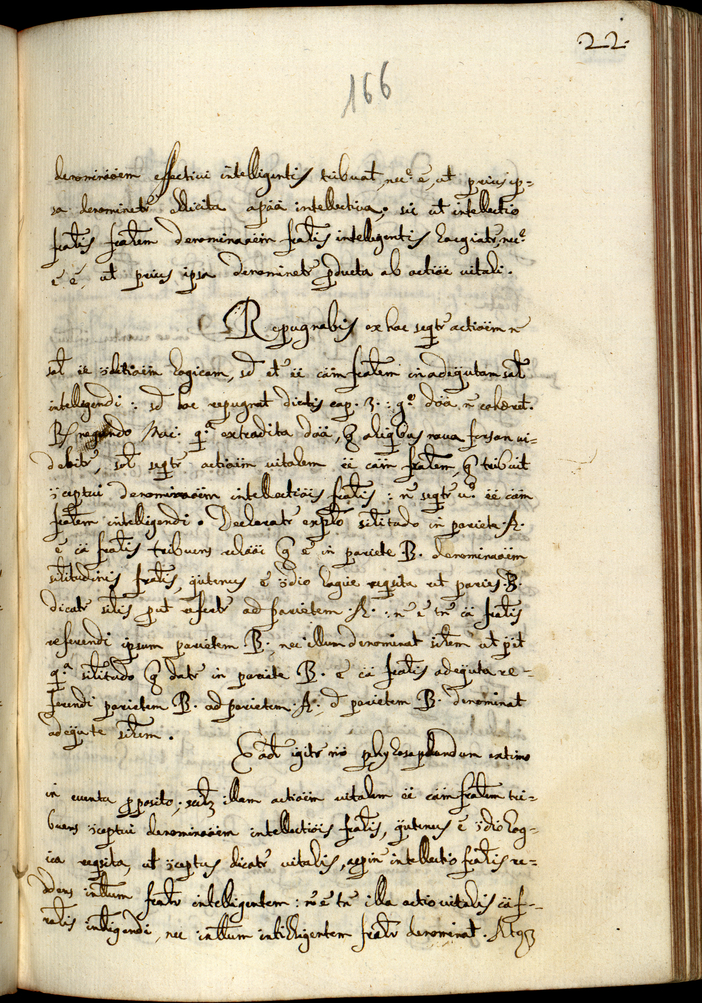 22.
166
denominãoem effectivi intelligentis tribuat, nec. ẽ, ut prius ip=
sa denominetr ellicita apãa intellectiva; sic ut intellectio
fralis fralem denominãoem fralis intelligentis largiatr, nec.
ẽ ẽ, ut prius ipsa denominetr pducta ab actioe vitali.
Repugnabis ex hac seqtr actioẽm ñ
sol ẽe ɔditioẽm logicam, sd et ẽe cãm fralem inadeqũtam
intelligendi: sd hoc repugnat dictis cap. 3.: gº. dõa ñ cohæret.
Rs negando Mai: qª extradita dõa, q aliqbus nova forsan vi=
debitr, sol seqtr actioẽm vitalem ẽe cãm fralem, q tribuit
ɔceptui denominãoem intellectiõis fralis: ñ seqtr vº. ẽe cãm
fralem intelligendi. Declaratr explo silitudo in pariete A.
ẽ cã fralis tribuens relãoi q ẽ in pariete B. denominãoem
silitudinis fralis, qũtenus ẽ ɔdio logice reqsita ut paries B.
dicatr silis put refertr ad parietem A.: ñ ẽ tñ cã fralis
referendi ipsum parietem B., nec illum denominat silem ut
qª silitudo q datr in pariete B. ẽ cã fralis adeqũta re=
ferendi parietem B. ad parietem A.; parietem B. denominat
adeqũte silem.
igitr phylosophandum extimo
in eventu pposito; scil illam actioẽm vitalem ẽe cãm fralem tri=
buens ɔceptui denominãoem intellectiõis fralis, qũtenus ẽ ɔdio log=
ica reqsita, ut ɔceptus dicatr vitalis, intellectio fralis re=
ddens intllum fralr intelligentem: ñ ẽ tñ illa actio vitalis cã f=
ralis intligendi, nec intllum intilligentem fralr denominat. Atq3